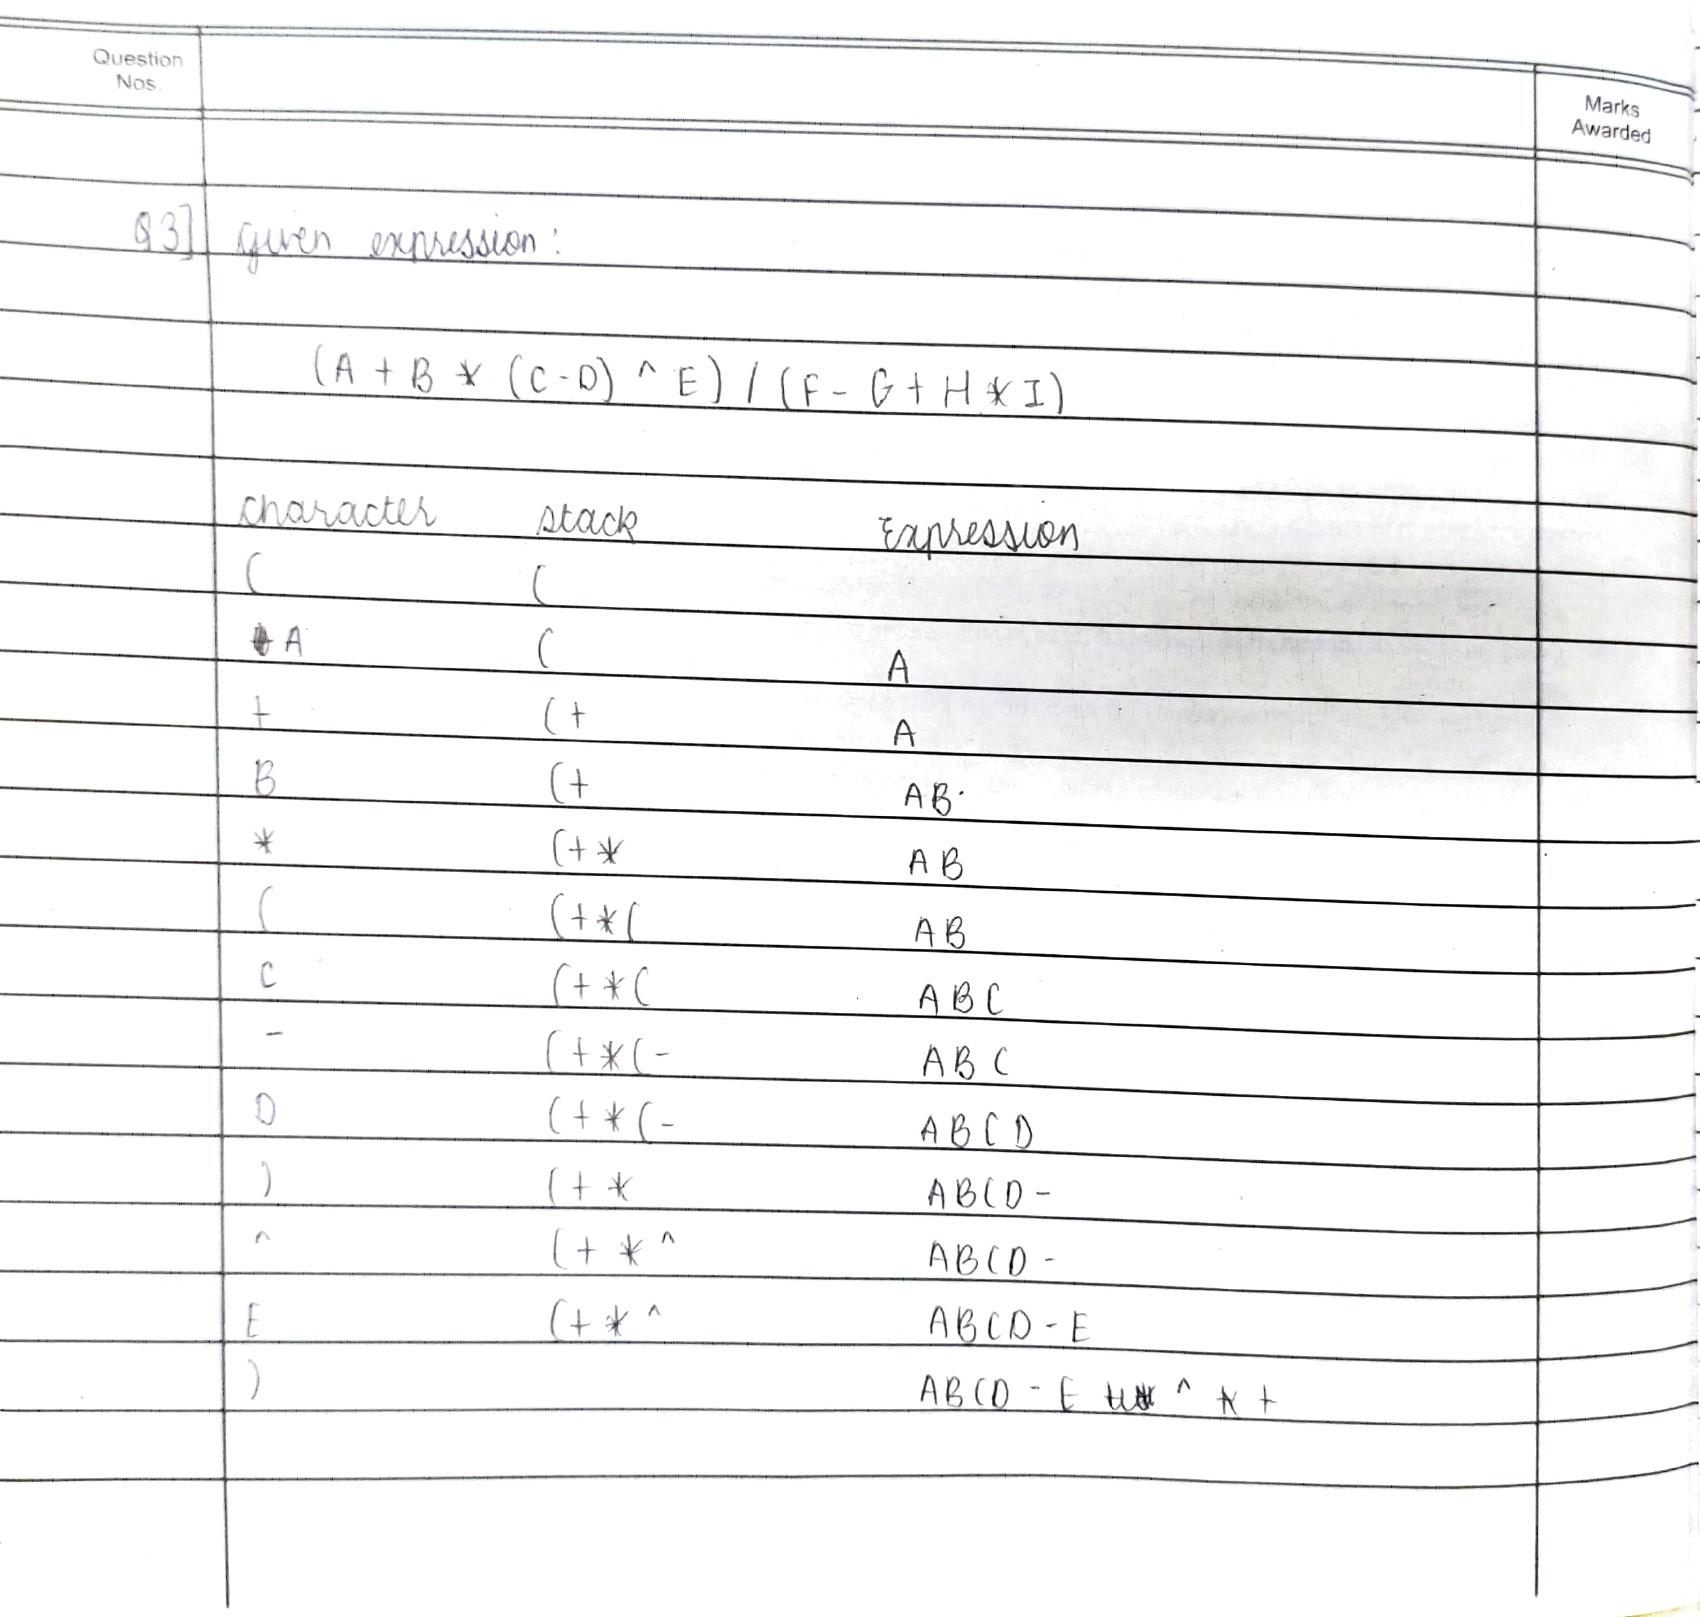 Question
Nos.
Marks
Awarded
Q3] Given expression:
(A + B * (C-D) ^ E) / (F - G + H * I)
character stack Expression
( (
A ( A
+ (+ A
B (+ AB
* (+* AB
( (+*( AB
C (+*( ABC
- (+*(- ABC
D (+*(- ABCD
) (+* ABCD-
^ (+*^ ABCD-
E (+*^ ABCD-E
) ABCD-E ^ * +